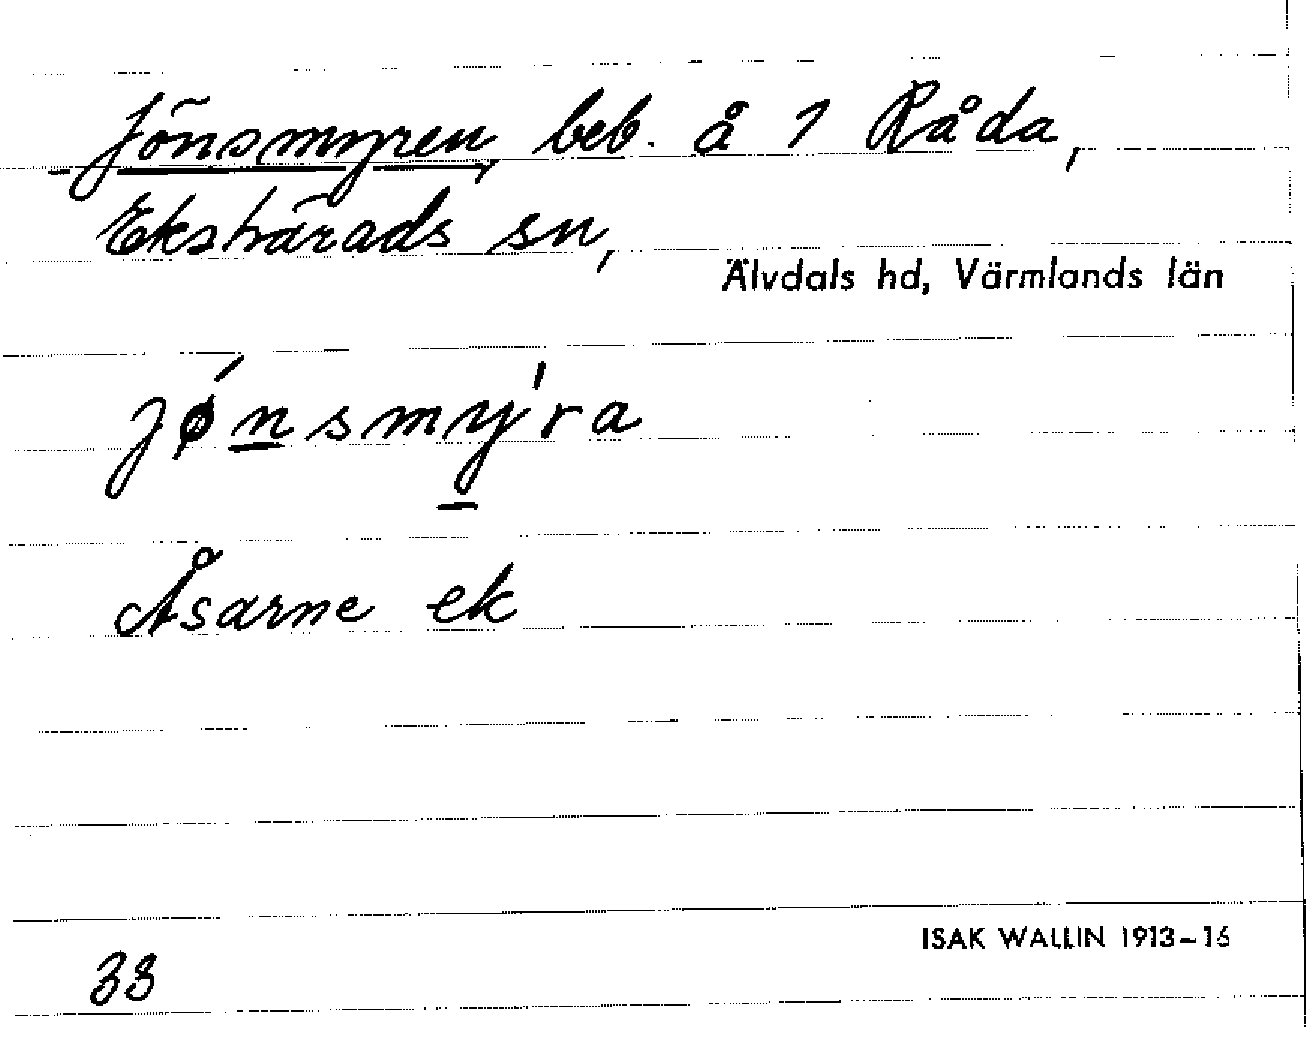 Jönsmyren, beb. å 1 Råda,
Ekshärads sn,
Älvdals hd, Värmlands län
jǿnsmy'ra
Åsarne ek
ISAK WALLIN 1913-16
33